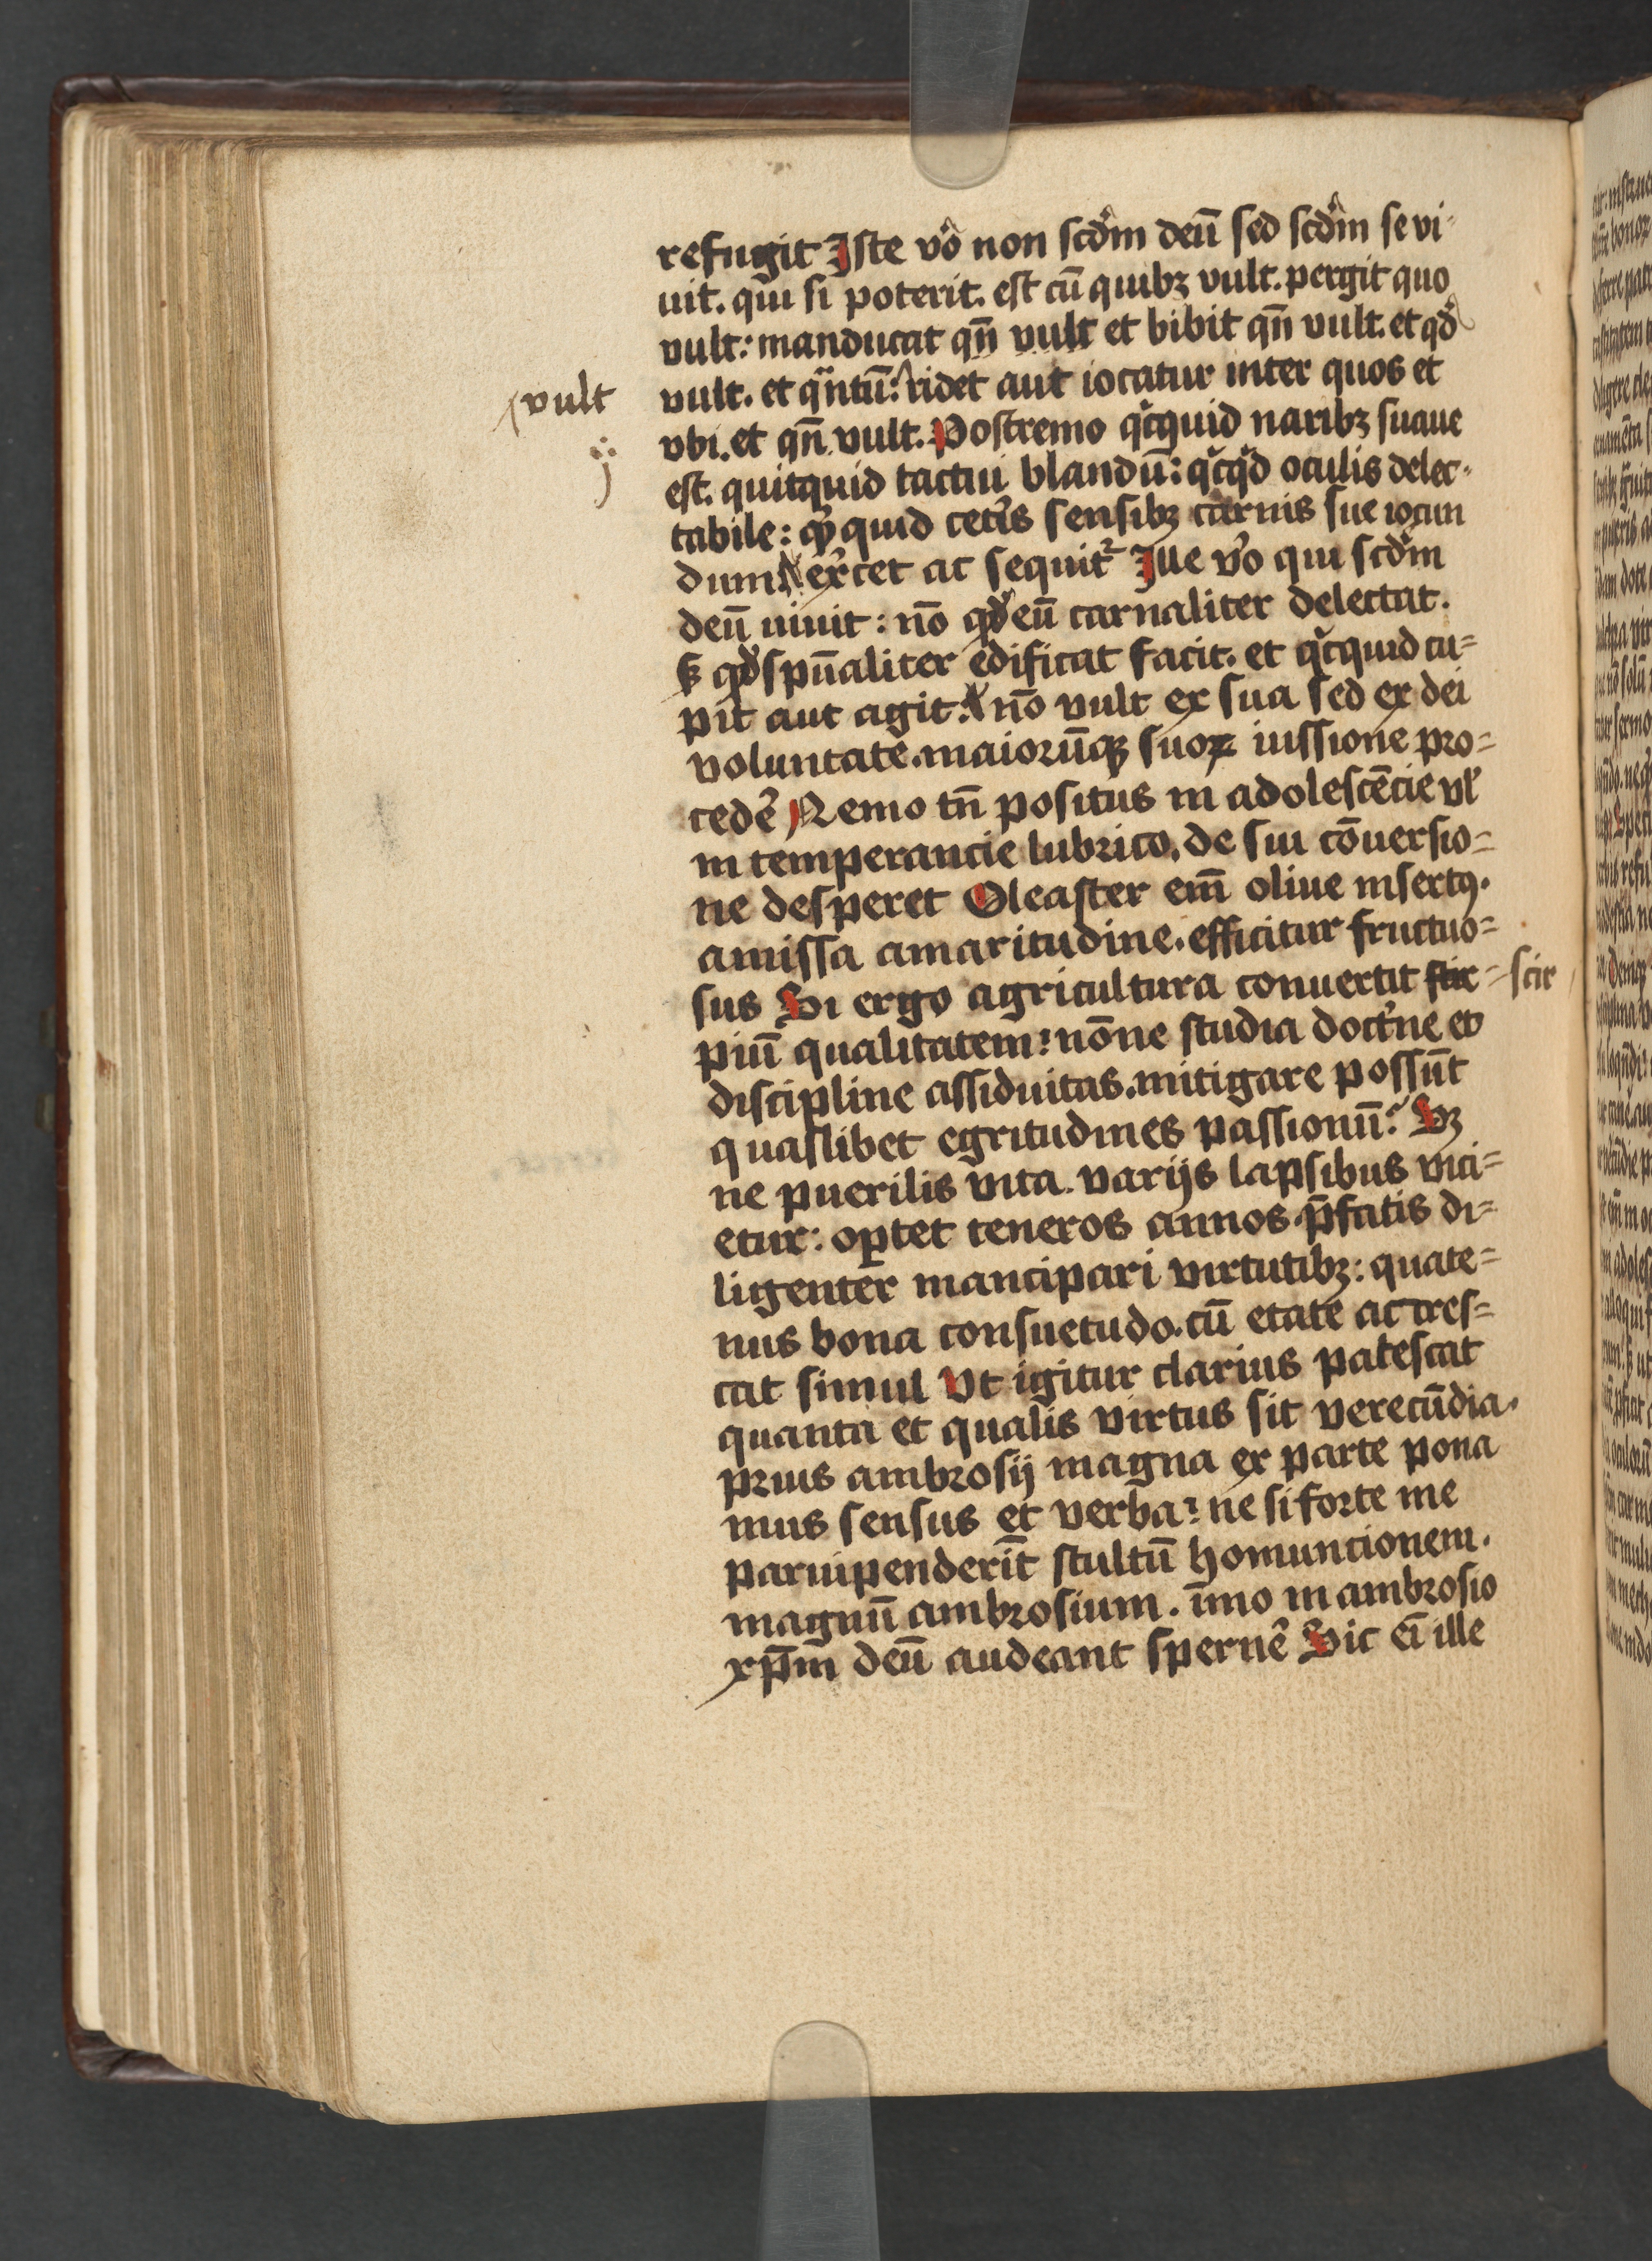 refugit Iste v̉o non scd̉m deū sed scd̉m se vi-
uit. qui si poterit. est cū quibꝫ vult. pergit quo
vult: manducat qn̄ vult et bibit qn̄ vult. et qd̉
vult. et qᵃntū: ridet aut iocatur inter quos et
vult
vbi. et qn̄ vult. Postremo qͥcquid naribꝫ suaue
est. quitquid tactui blandū: qͥcqͥd oculis delec-
tabile: quid cet̉is sensibꝫ carnis sue iocun
dum ex̉cet ac sequitᷣ Ille v̉o qui scd̉m
deū uiuit: nō qd̉ eū carnaliter delectat.
sꝫ qd̉ spūaliter edificat facit. et qͥcquid cu-
pit aut agit: nō vult ex sua sed ex dei
voluntate. maiorūqꝫ suoꝝ iussione pro-
ced̉e Nemo tn̄ positus in adolescēcie vł
in temperancie lubrico, de sui cōuersio-
ne desperet Oleaster em̄ oliue insertꝯ.
amissa amaritudine. efficitur fructuo-
sus Si ergo agricultura conuertit stir- scir
piū qualitatem: nōne studia doct̉ne et
discipline assiduitas. mitigare possūt
quaslibet egritudines passionū? Sꝫ
ne puerilis vita varijs lapsibus vici-
etur: oꝑtet teneros annos p̄fatis di-
ligenter mancipari virtutibꝫ: quate-
nus bona consuetudo. cū etate ac cres-
cat simul Vt igitur clarius patescat
quanta et qualis virtus sit verecūdia.
prius ambrosij magna ex parte pona
mus sensus et verba: ne si forte me
paruipenderīt stultū homuncionem.
magnū ambrosium. īmo in ambrosio
xp̄m deū audeant spern̉e Sic eī ille